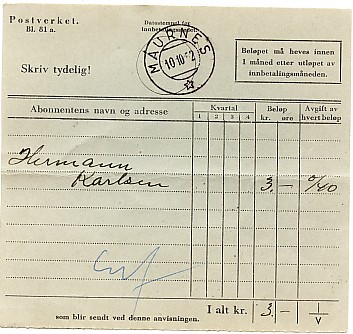 Postverket.
Bl. 81 a.
Datostempel for
innbetalingsmåned:
MAURNES
10-10-2
Beløpet må heves innen
1 måned etter utløpet av
innbetalingsmåneden.
Skriv tydelig!
Abonnentens navn og adresse
Kvartal
1 2 3 4
Beløp
kr. øre
Avgift av
hvert beløp
Hermann
Karlsen 3.- 0/40
I alt kr. 3.-
som blir sendt ved denne anvisningen.
1
V